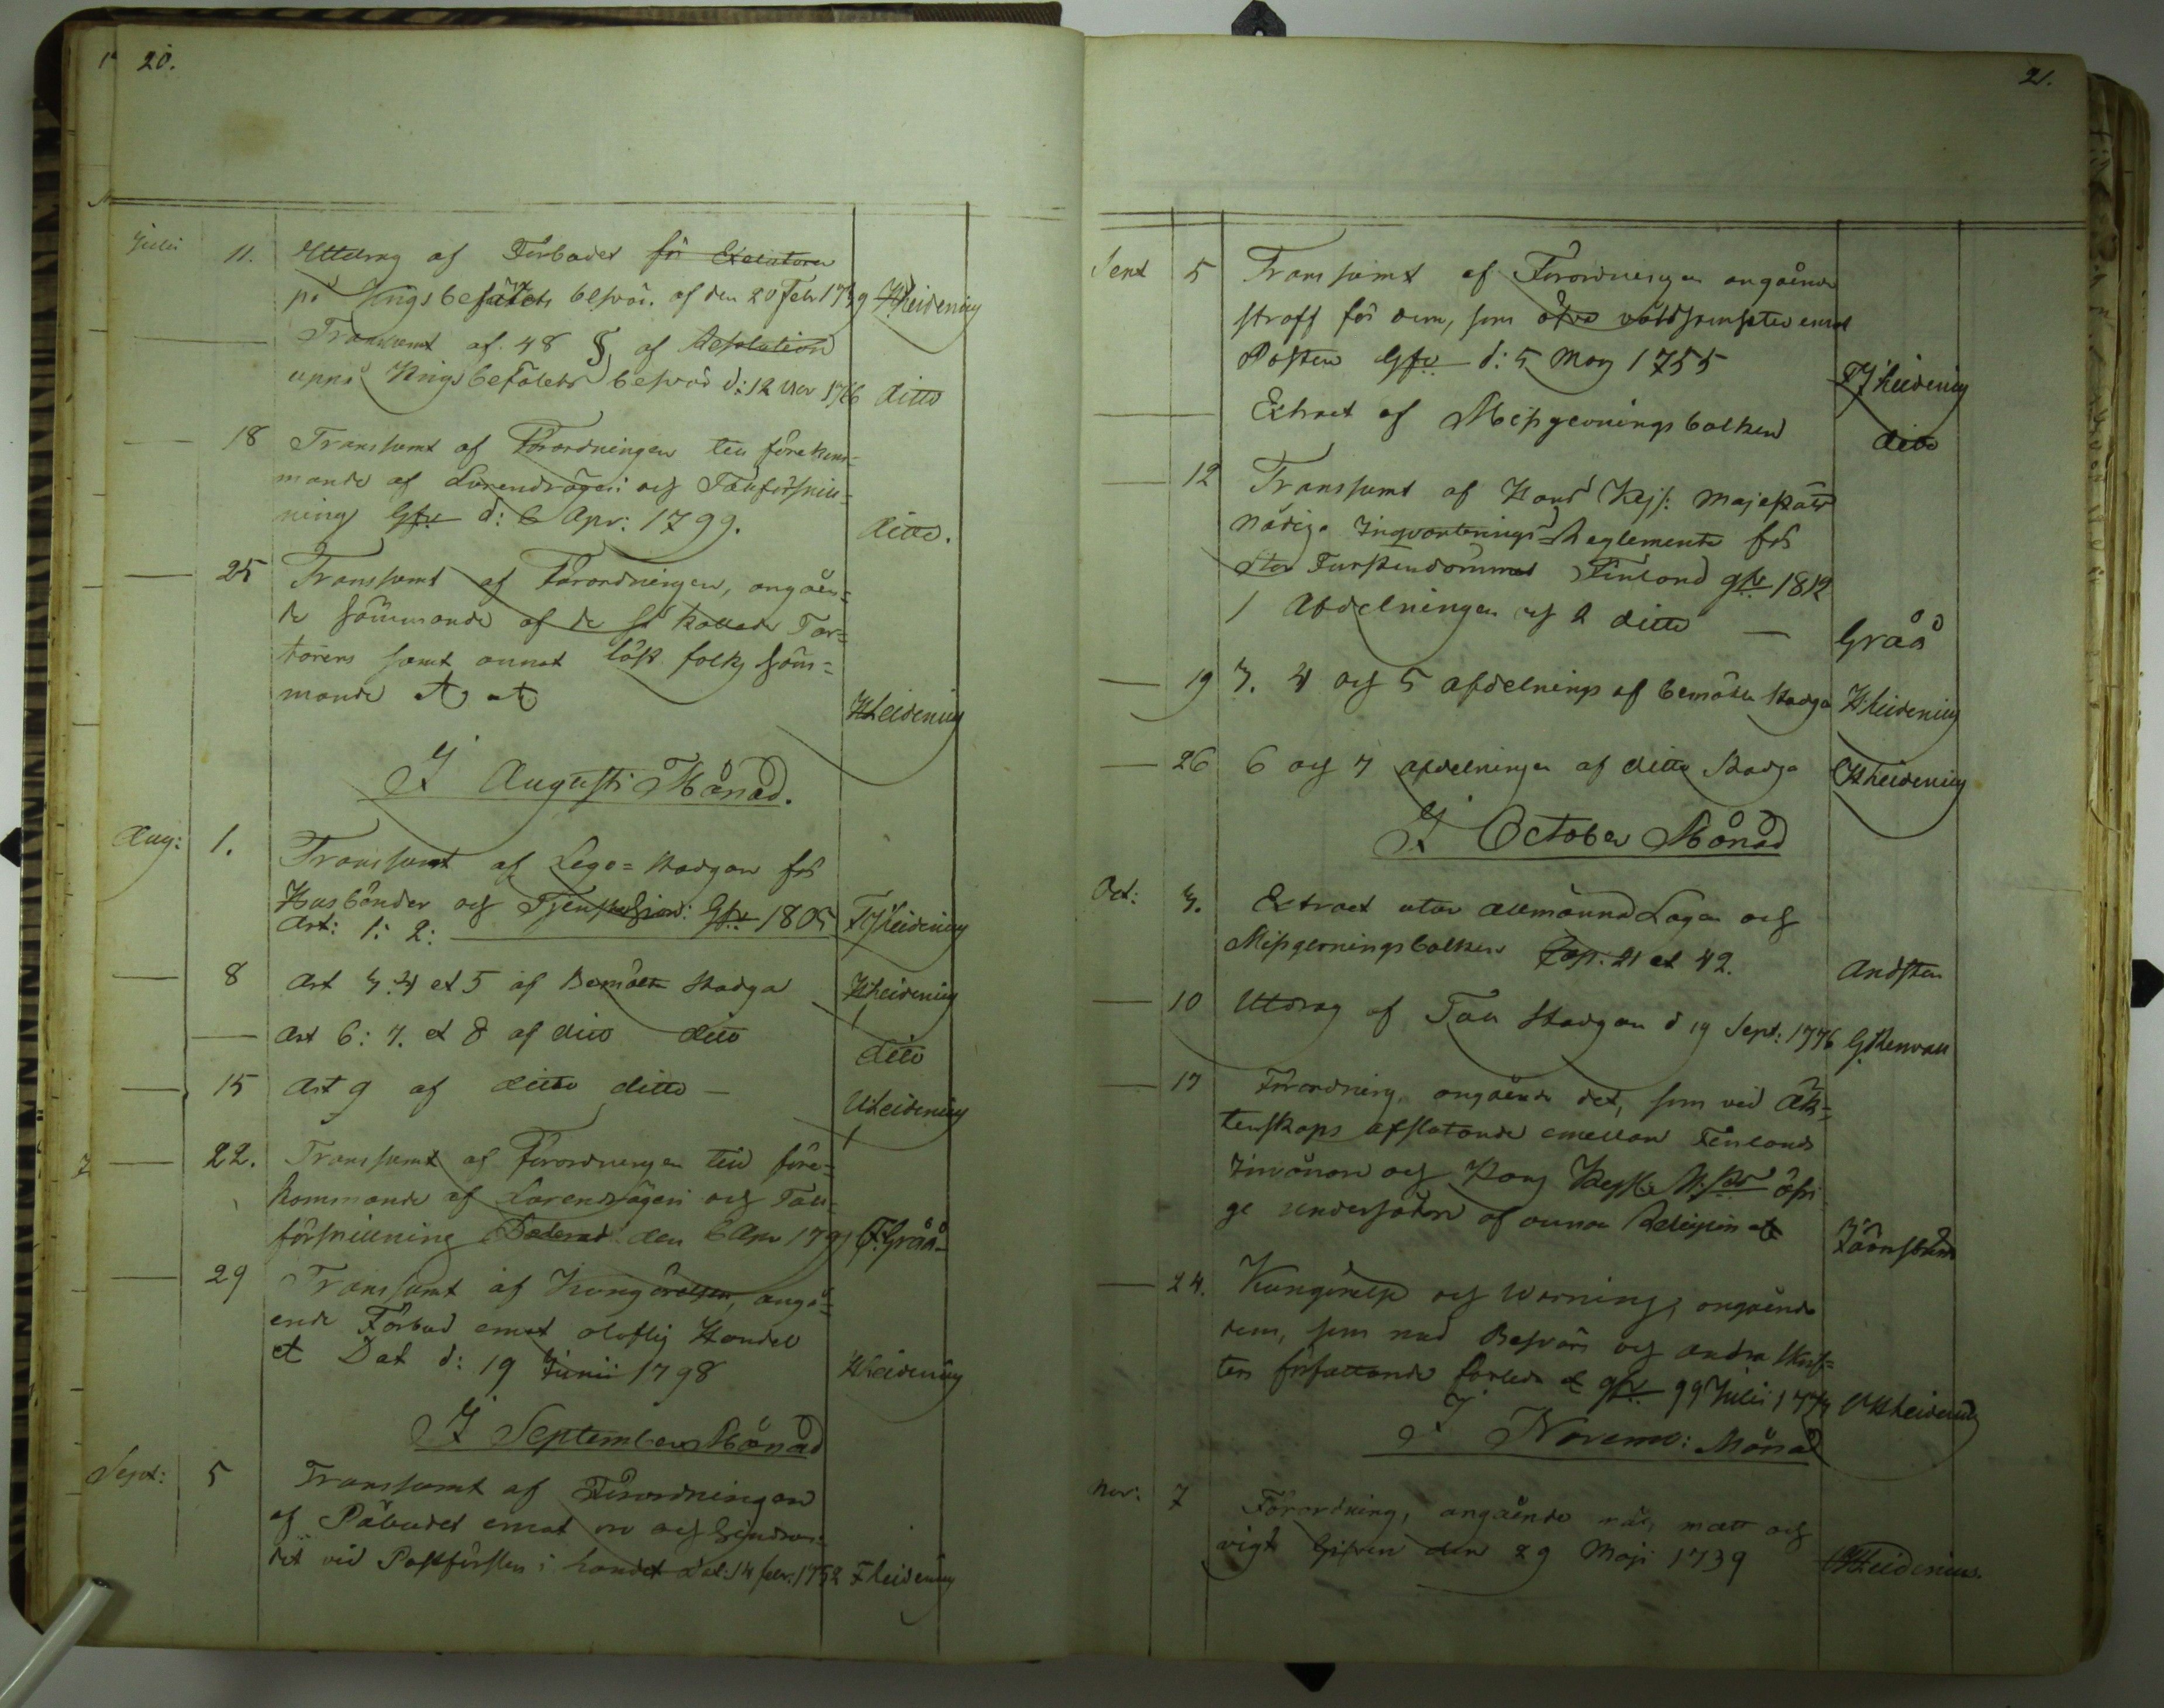 20.
Julii 11. Utdrag af Förbudet för Executorer
på Krigsbefälets besvär. af den 20 Febr 1739 Heidenius
Transsumt af 48 §, af Resolution
uppå Krigsbefälets besvär d: 12 1766 ditto
18 Transsumt af Förordningen till förekom-
mande af Lurendrägeri och Tullförsnill-
ning Gifv. d: 6 Apr: 1799. ditto.
25 Transsumt af Förordningen, angåen-
de hämmande af de så kallade Tar-
tarers samt annat löst folks häm-
mande etc etc Heidenius
I Augusti Månad.
Aug: 1. Transsumt af Lego-stadgan för
Husbönder och Tjenstehjon: Gifv: 1805
Art: 1: 2: F Heidenius
8 Art 3. 4 et 5 af Bemälte Stadga Heidenius
Art 6: 7. et 8 af ditto ditto ditto
15 Art 9 af ditto ditto — Heidenius
22. Transsumt af Förordningen till före-
kommande af Lurendrägeri och Tull-
försnillning Daterad den 6 Apr 1799 F. Gråå
29 Transsumt af Kungörelsen, angå-
ende Förbud emot oloflig Handel
et Dat d: 19 Junii 1798 Heidenius
I September Månad
Sept: 5 Transsumt af Förordningen
af Påbudet emot och hindran-
det vid Postförslen i landet Dat: 14 febr. 1752 F Heidenius
21.
Sept 5 Transsumt af Förordningen angående
straff för dem, som öfva våldsamheter emot
Posten Gifv d: 5 May 1755 F Heidenius
Extract af Missgernings balken ditto
12 Transsumt af Hans Kejs: Majestäts
nådiga Inqvarterings-Reglemente för
Stor Furstendömmet Finland gifv 1812
1 Afdelningen och 2 ditto — Gråå
19 3. 4 och 5 afdelnings af bemälte Stadga Heidenius
26 6 och 7 afdelningen af ditto Stadga Heidenius
I October Månad
Oct: 3. Extract utur Allmänna Lagen och
Missgerningsbalken Cap. 21 et 42. Andsten
10 Utdrag af Tull Stadgan d 19 Sept: 1776 G Renvall
17 Förordning, angående det, som vid Äk-
tenskaps afslutande emellan Finlands
Innvånare och Hans Kejsl: M:ts öfri
ge undersåtare af annan Religion etc
24. Kungörelse och Warning, angående
dem, som med Besvärs och andra Skrif-
ters författande förleda et gifv. 99 Julii 177 Heidenius
I Novemb: Månad
Nov: 7 Förordning, angående mål, mått och
vigt Gifven den 29 Maji 1739 Heidenius.